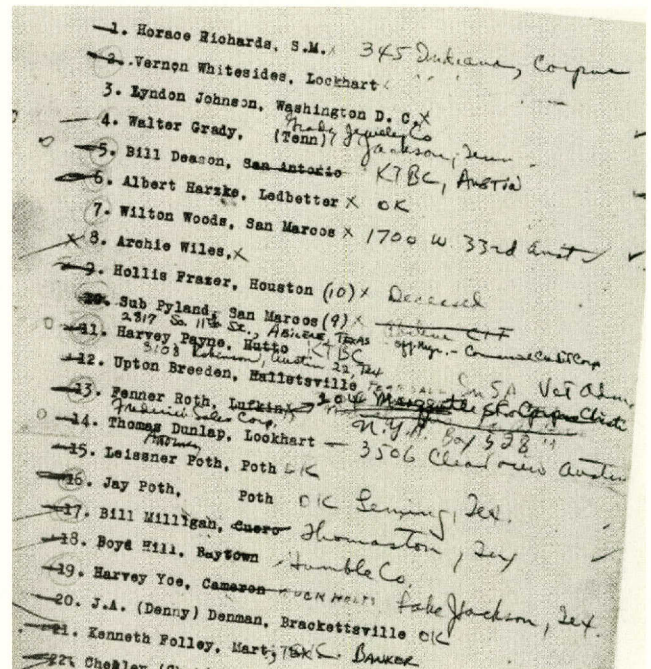 1. Horace Richards, S.M. x 345 Indiana, Corpus
2. Vernon Whitesides, Lockhart
3. Lyndon Johnson, Washington D. C. x
Grady Jewelry Co
4. Walter Grady, (Tenn) Jackson, Tenn
5. Bill Deason, San Antonio KTBC, AUSTIN
6. Albert Harzke, Ledbetter x OK
7. Wilton Woods, San Marcos x 1700 W. 33rd Aust
8. Archie Wiles, x
9. Hollis Frazer, Houston (10) x Deceased
10. Sub Pyland, San Marcos (9) x
2817 So. 11th St., ABILENE, TEXAS Off. Mgr. - Commercial Credit Corp
11. Harvey Payne, Hutto KTBC
3108 Robinson, Austin 22, Tex
12. Upton Breeden, Halletsville In SA Vet Adm.
13. Fenner Roth, Lufkin x Corpus Christi
Frederici Sales Corp. N.Y.A. Box 528
14. Thomas Dunlap, Lockhart — 3506 Clearview Austin
Attorney
15. Leissner Poth, Poth OK
16. Jay Poth, Poth OK Leming, Tex.
17. Bill Milligan, Cuero Thomaston, Tex
18. Boyd Hill, Baytown Humble Co.
19. Harvey Yoe, Cameron BUCKHOLTS Lake Jackson, Tex.
20. J.A. (Denny) Denman, Brackettsville OK
21. Kenneth Folley, Mart, TEX. BANKER
22.